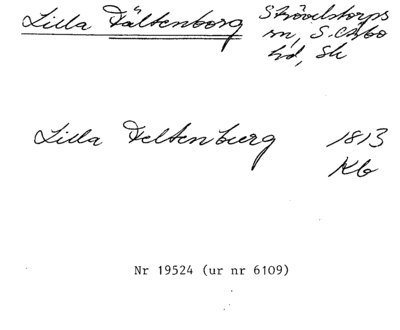 Lilla Fältenborg Strövelstorps
sn, S. Åsbo
hd, Sk
Lilla Feltenburg 1813
Kb
Nr 19524 (ur nr 6109)